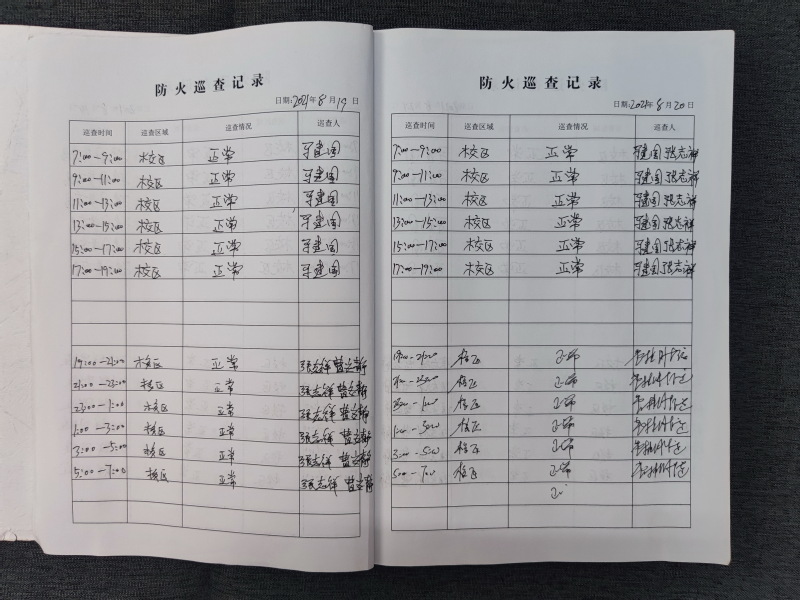 防火巡查记录
日期:2021年8月19日
巡查时间 巡查区域 巡查情况 巡查人
7:00—9:00 校区 正常 建国
9:00—11:00 校区 正常 建国
11:00—13:00 校区 正常 建国
13:00—15:00 校区 正常 建国
15:00—17:00 校区 正常 建国
17:00—19:00 校区 正常 建国
19:00—21:00 校区 正常 张志祥
21:00—23:00 校区 正常 张志祥
23:00—1:00 校区 正常 张志祥
1:00—3:00 校区 正常 张志祥
3:00—5:00 校区 正常 张志祥
5:00—7:00 校区 正常 张志祥
防火巡查记录
日期:2021年8月20日
巡查时间 巡查区域 巡查情况 巡查人
7:00—9:00 校区 正常 建国 张志祥
9:00—11:00 校区 正常 建国 张志祥
11:00—13:00 校区 正常 建国 张志祥
13:00—15:00 校区 正常 建国 张志祥
15:00—17:00 校区 正常 建国 张志祥
17:00—19:00 校区 正常 建国 张志祥
19:00—21:00 校区 正常
21:00—23:00 校区 正常
23:00—1:00 校区 正常
1:00—3:00 校区 正常
3:00—5:00 校区 正常
5:00—7:00 校区 正常